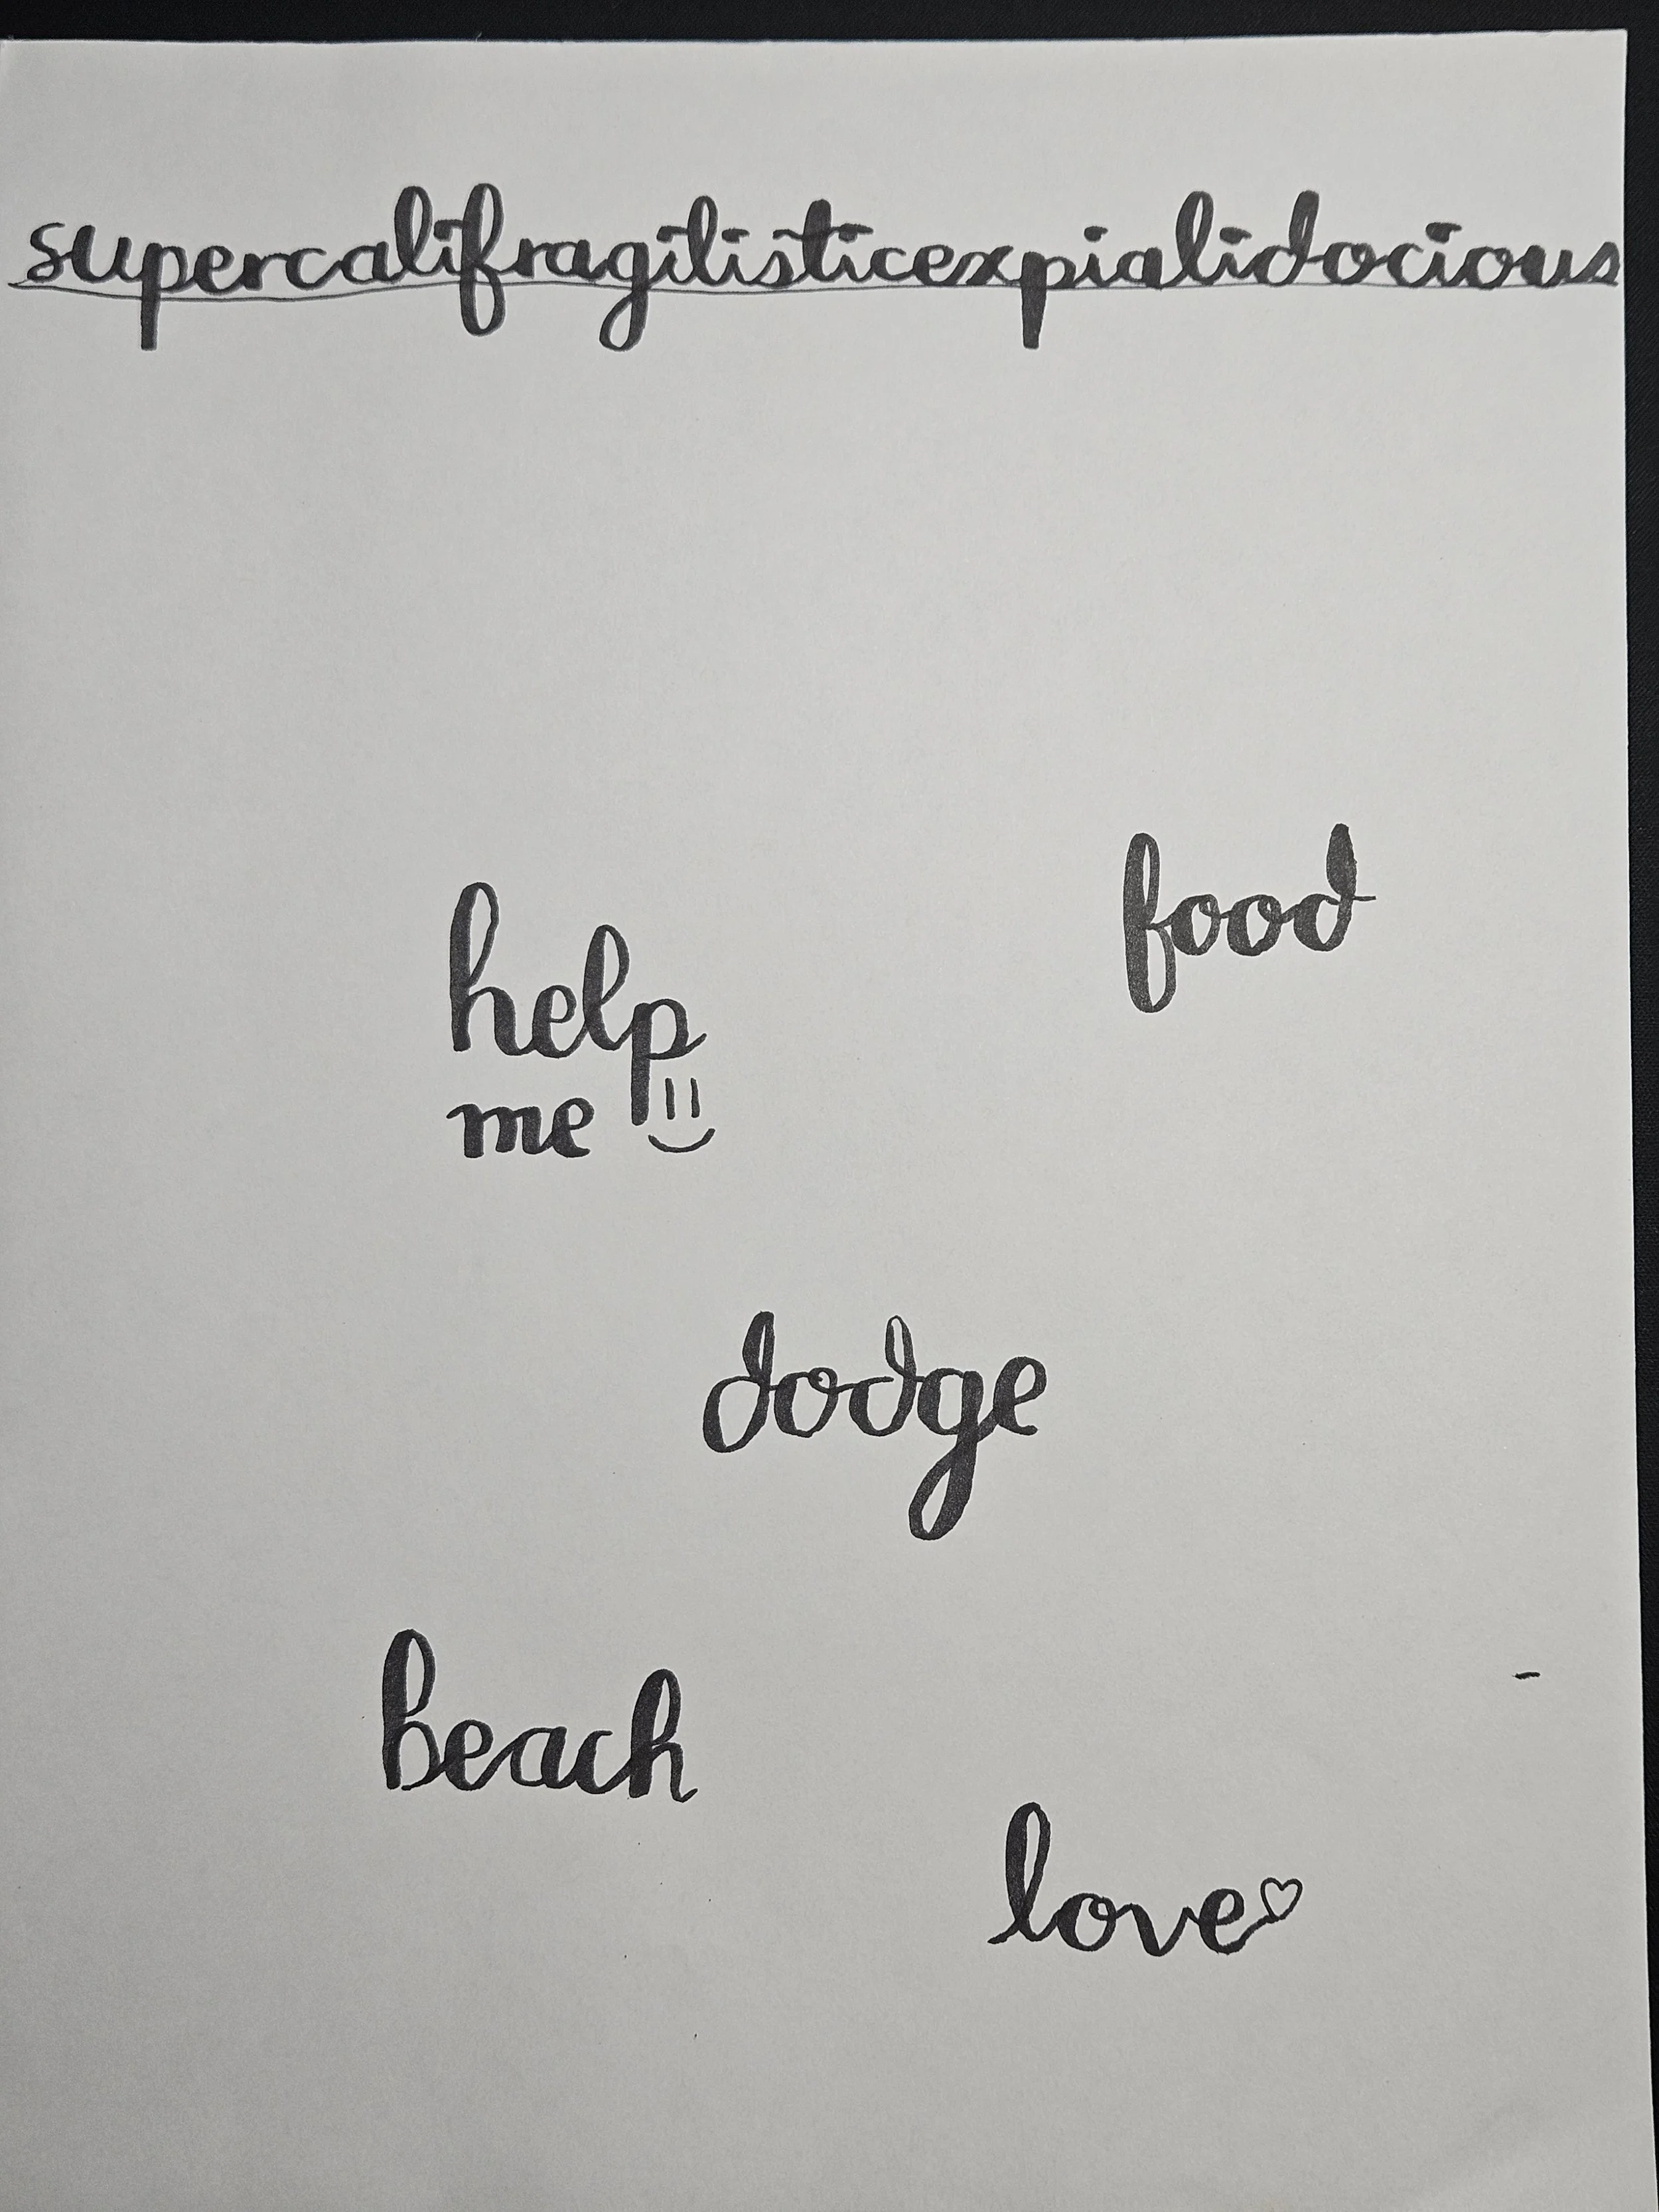 supercalifragilisticexpialidocious
food
help
me
dodge
beach
love